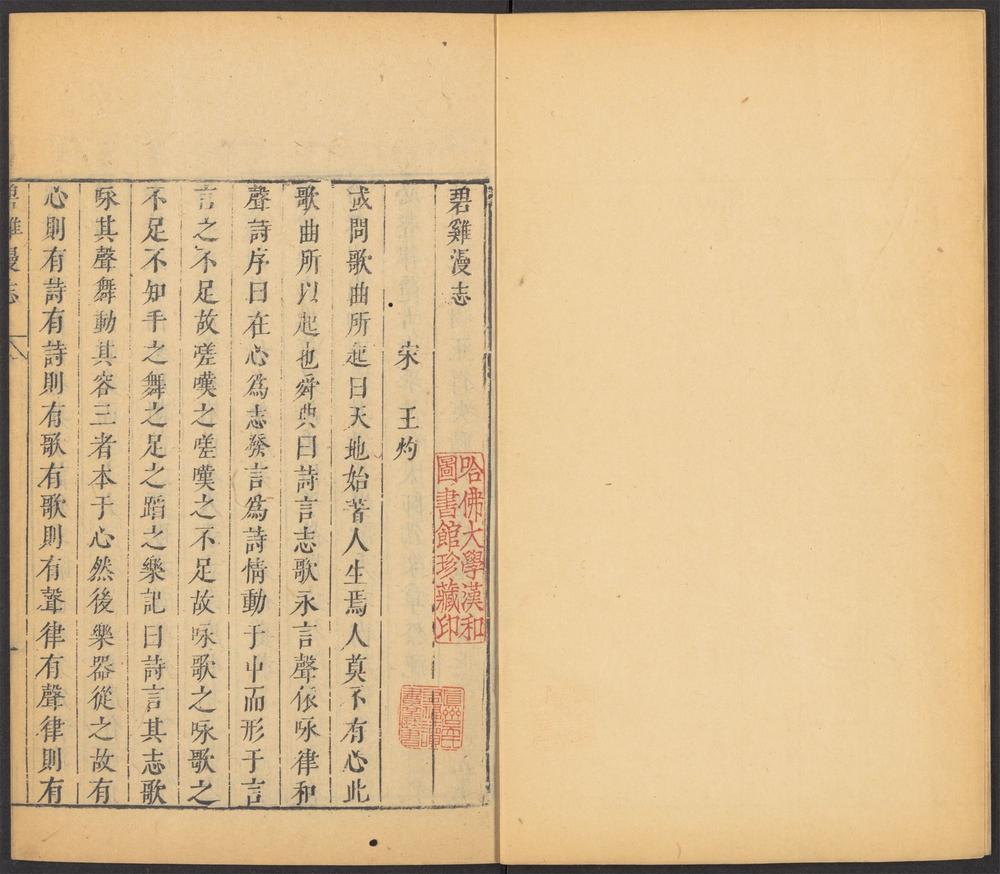 碧雞漫志
宋　王灼
或問歌曲所起曰天地始著人生焉人莫不有心此
歌曲所以起也舜典曰詩言志歌永言聲依咏律和
聲詩序曰在心為志發言為詩情動于中而形于言
言之不足故嗟嘆之嗟嘆之不足故咏歌之咏歌之
不足不知手之舞之足之蹈之樂記曰詩言其志歌
咏其聲舞動其容三者本于心然後樂器從之故有
心則有詩有詩則有歌有歌則有聲律有聲律則有
碧雞漫志
一
哈佛大學漢和
圖書館珍藏印